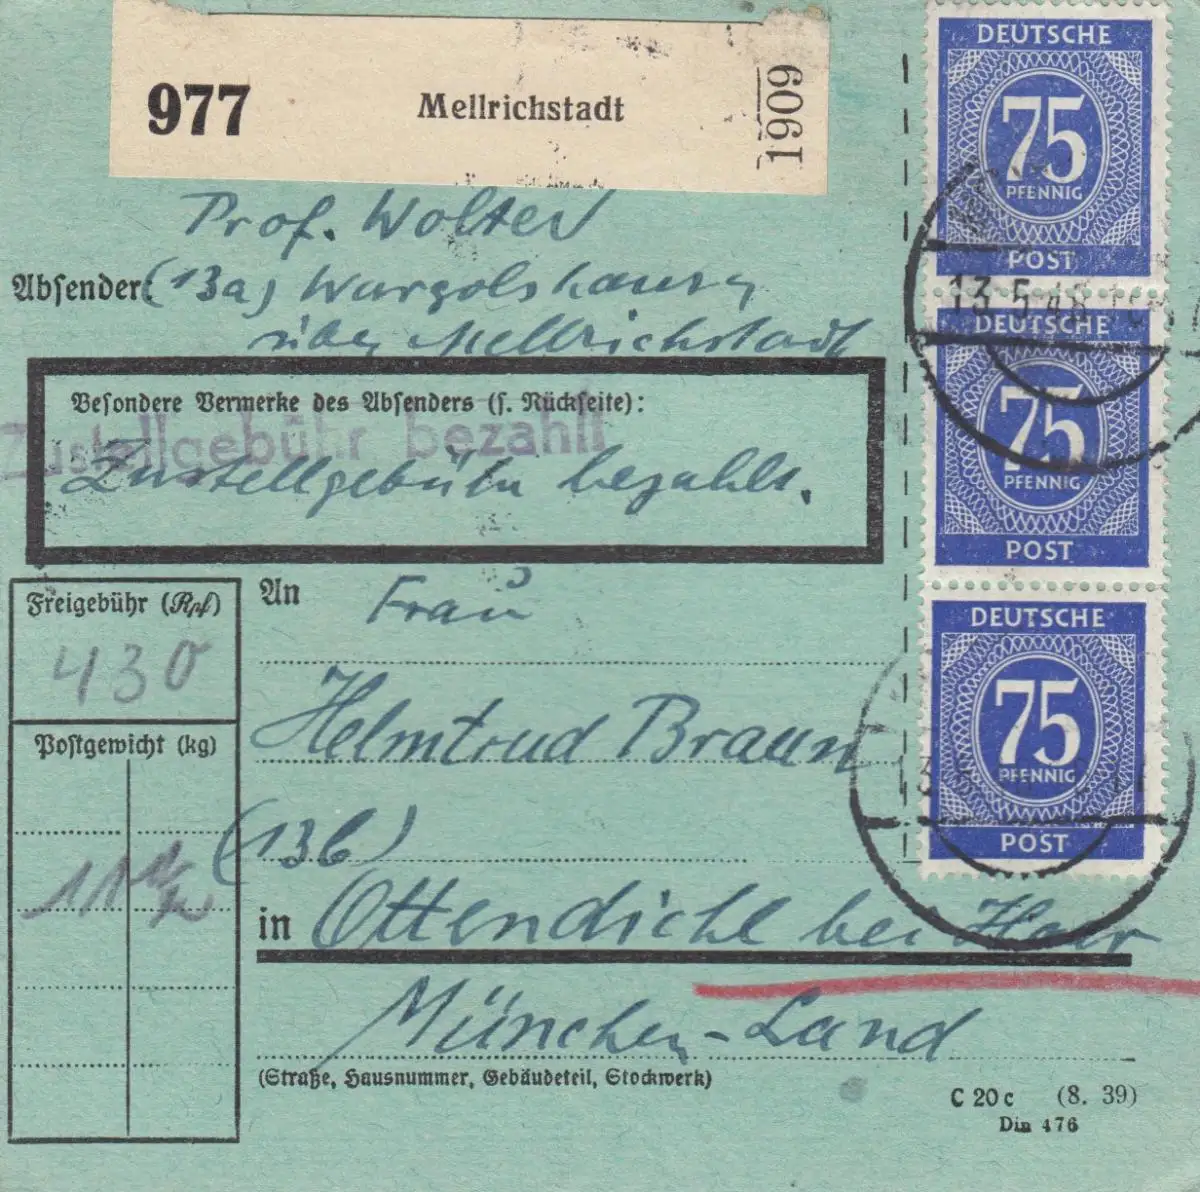 977
Mellrichstadt
1909
Prof. Wolter
Absender: (13a) Wargolshausen
über Mellrichstadt
Besondere Vermerke des Absenders (s. Rückseite):
Zustellgebühr bezahlt
Zustellgebühr bezahlt.
Freigebühr (Rpf)
430
Postgewicht (kg)
11 1/2
An Frau
Helmtrud Braun
(13b)
in Ottendichl bei Haar
München-Land
(Straße, Hausnummer, Gebäudeteil, Stockwerk)
C 20 c (8. 39)
Din 476
DEUTSCHE
75
PFENNIG
POST
13.5.48
DEUTSCHE
75
PFENNIG
POST
DEUTSCHE
75
PFENNIG
POST